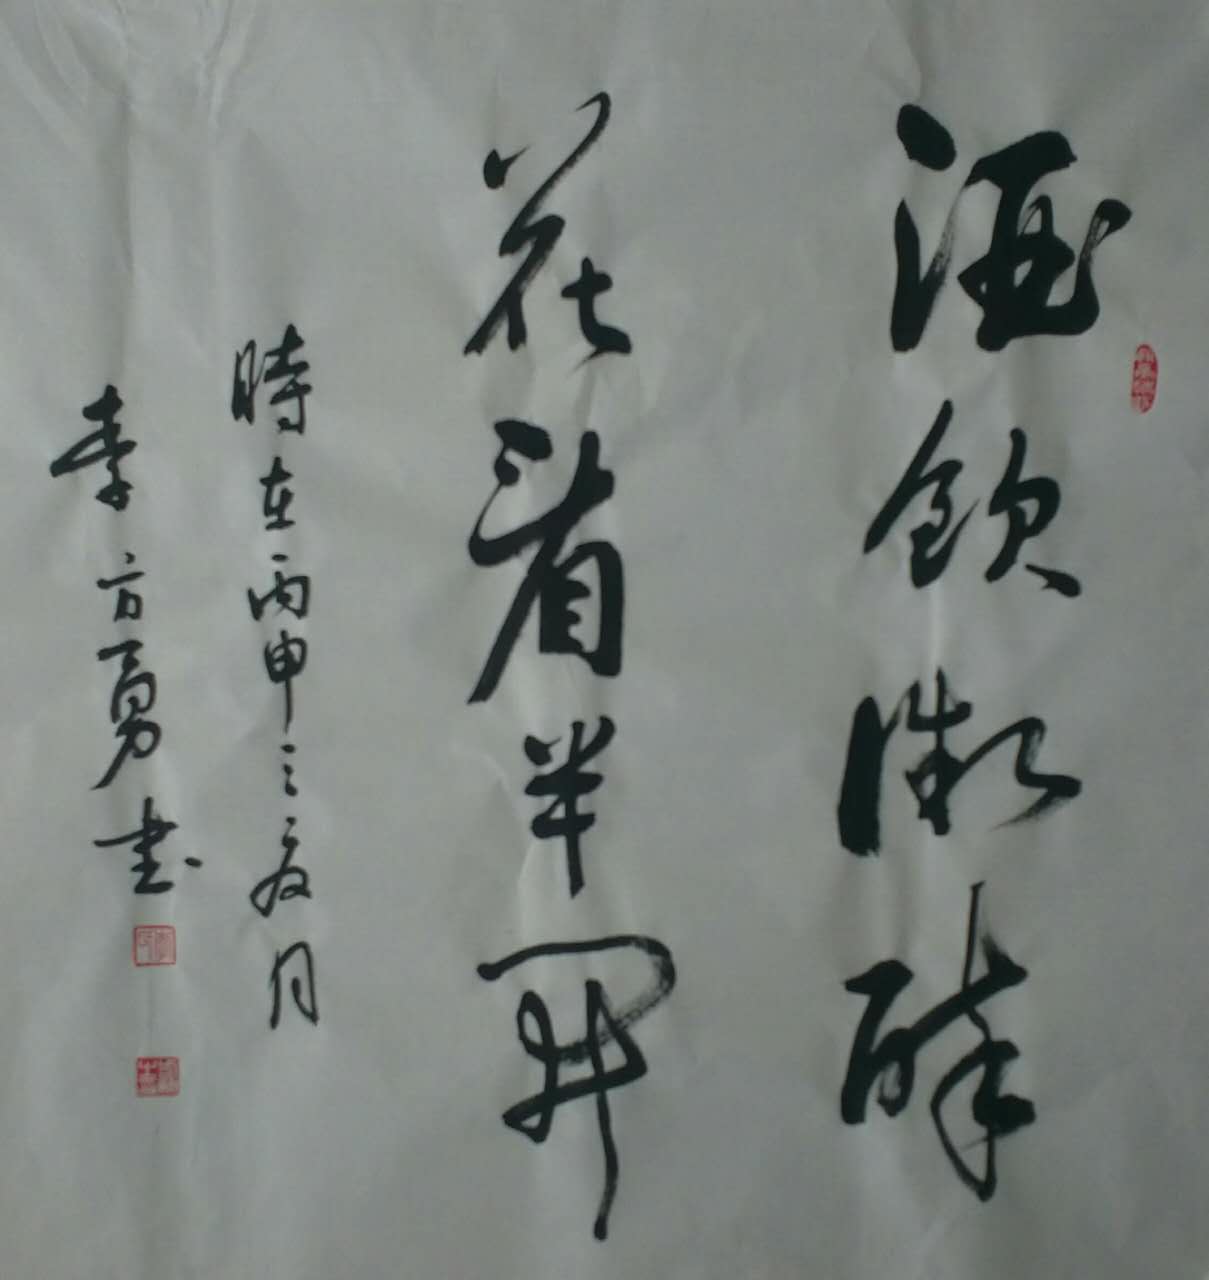 酒飲微醉
花看半開
時在丙申之夏月
李方勇書